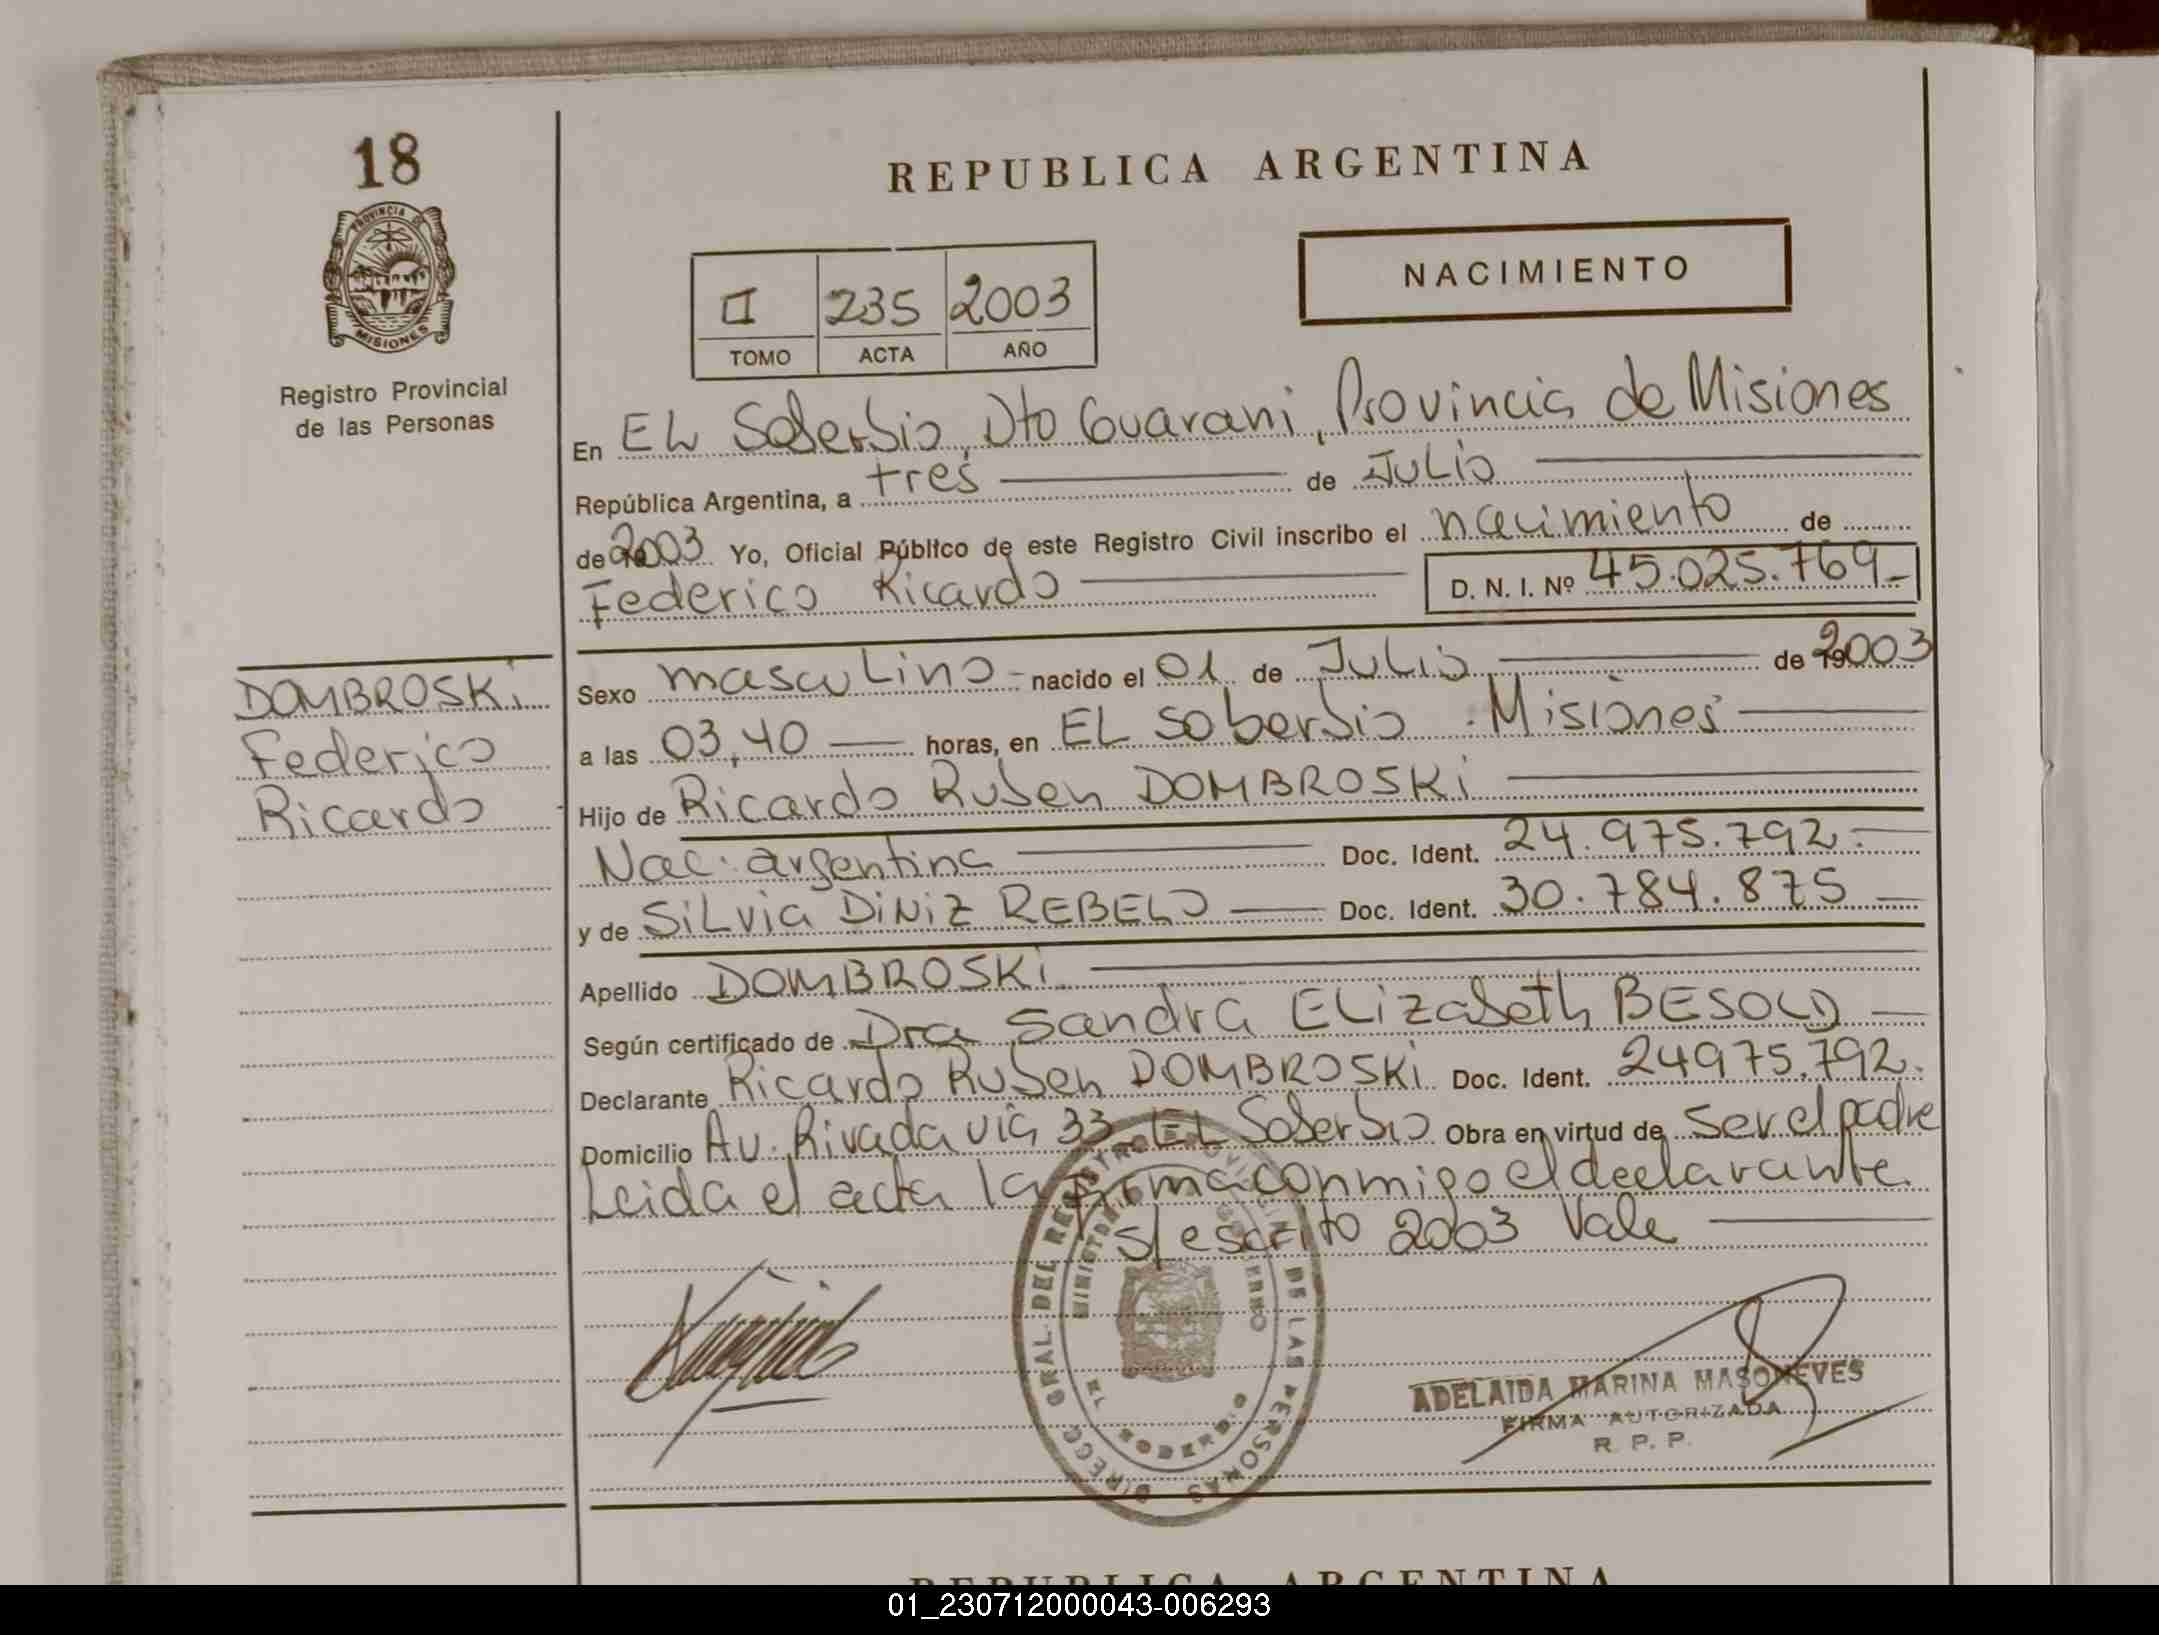 18
PROVINCIA DE
MISIONES
Registro Provincial
de las Personas
DOMBROSKi
Federico
Ricardo
REPUBLICA ARGENTINA
NACIMIENTO
II 235 2003
TOMO ACTA AÑO
En EL Soberbio, Dto Guarani, Provincia de Misiones
República Argentina, a tres de Julio
de 2003 Yo, Oficial Público de este Registro Civil inscribo el nacimiento de
Federico Ricardo D. N. I. Nº 45.025.769-
Sexo masculino - nacido el 01 de Julio de 2003
a las 03,40 horas, en EL Soberbio . Misiones
Hijo de Ricardo Ruben DOMBROSKi
Nac. argentina Doc. Ident. 24.975.792.
y de SiLvia DiNiZ REBELO Doc. Ident. 30.784.875
Apellido DOMBROSKi
Según certificado de Dra Sandra ELizabeth BESOLD
Declarante Ricardo Ruben DOMBROSKi Doc. Ident. 24975.792.
Domicilio Av. Rivadavia 33 EL Soberbio Obra en virtud de ser el padre
Leida el acta la firma conmigo el declarante
s/ escrito 2003 Vale
DIRECC. GRAL. DEL REGISTRO PROVINCIAL DE LAS PERSONAS
MINISTERIO DE GOBIERNO
EL SOBERBIO
ADELAIDA MARINA MASONEVES
FIRMA AUTORIZADA
R. P. P.
REPUBLICA ARGENTINA
01_230712000043-006293